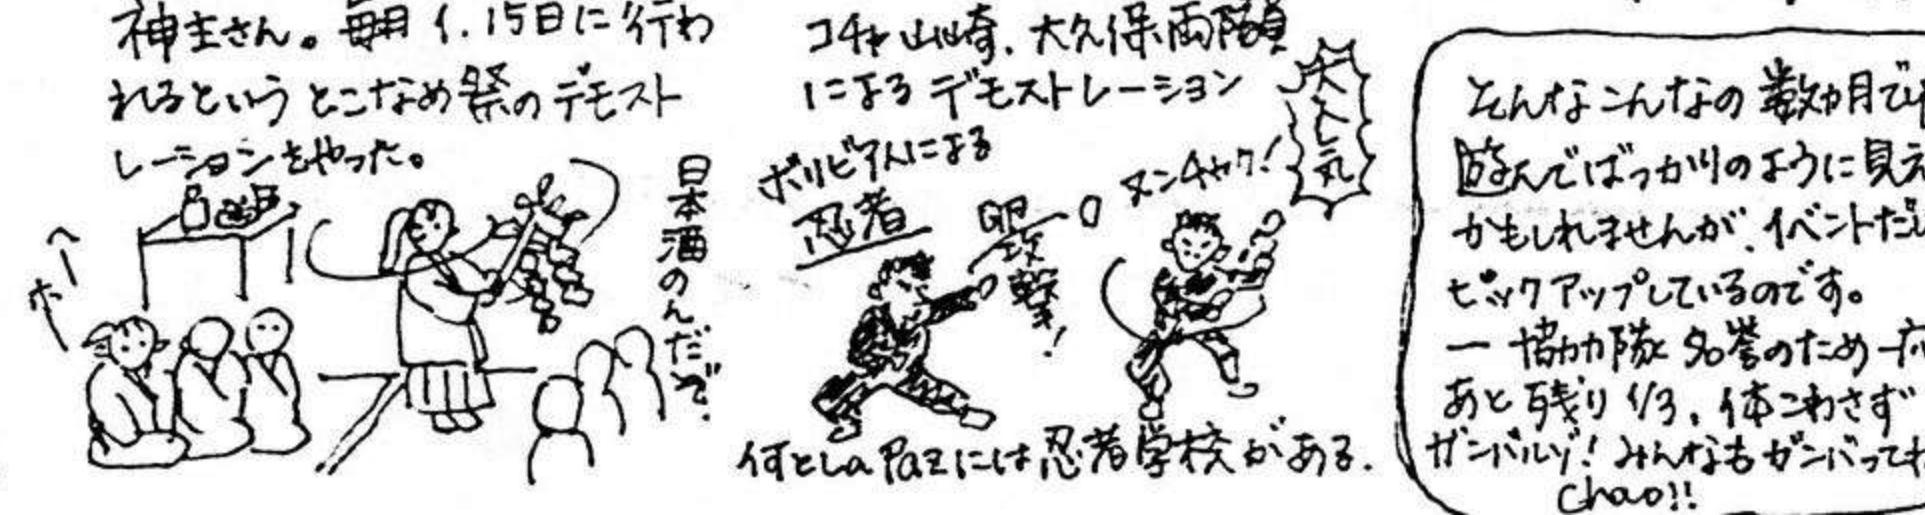 神主さん。毎月1.15日に行わ
れるというとこなめ祭のデモスト
レーションをやった。
へー
ホー
日本酒のんだぞ.
コチャ山崎、大久保両隊員
によるデモストレーション
ボリビアんによる
忍者
卵攻撃!
ヌンチャク!
大人気
何とLa Pazには忍者学校がある.
そんなこんなの数カ月で
遊んでばっかりのように見え
かもしれませんが、イベントだけ
ピックアップしているのです。
ー協力隊名誉のため
あと残り1/3、体こわさず
ガンバルゾ!みんなもガンバってね
Chao!!